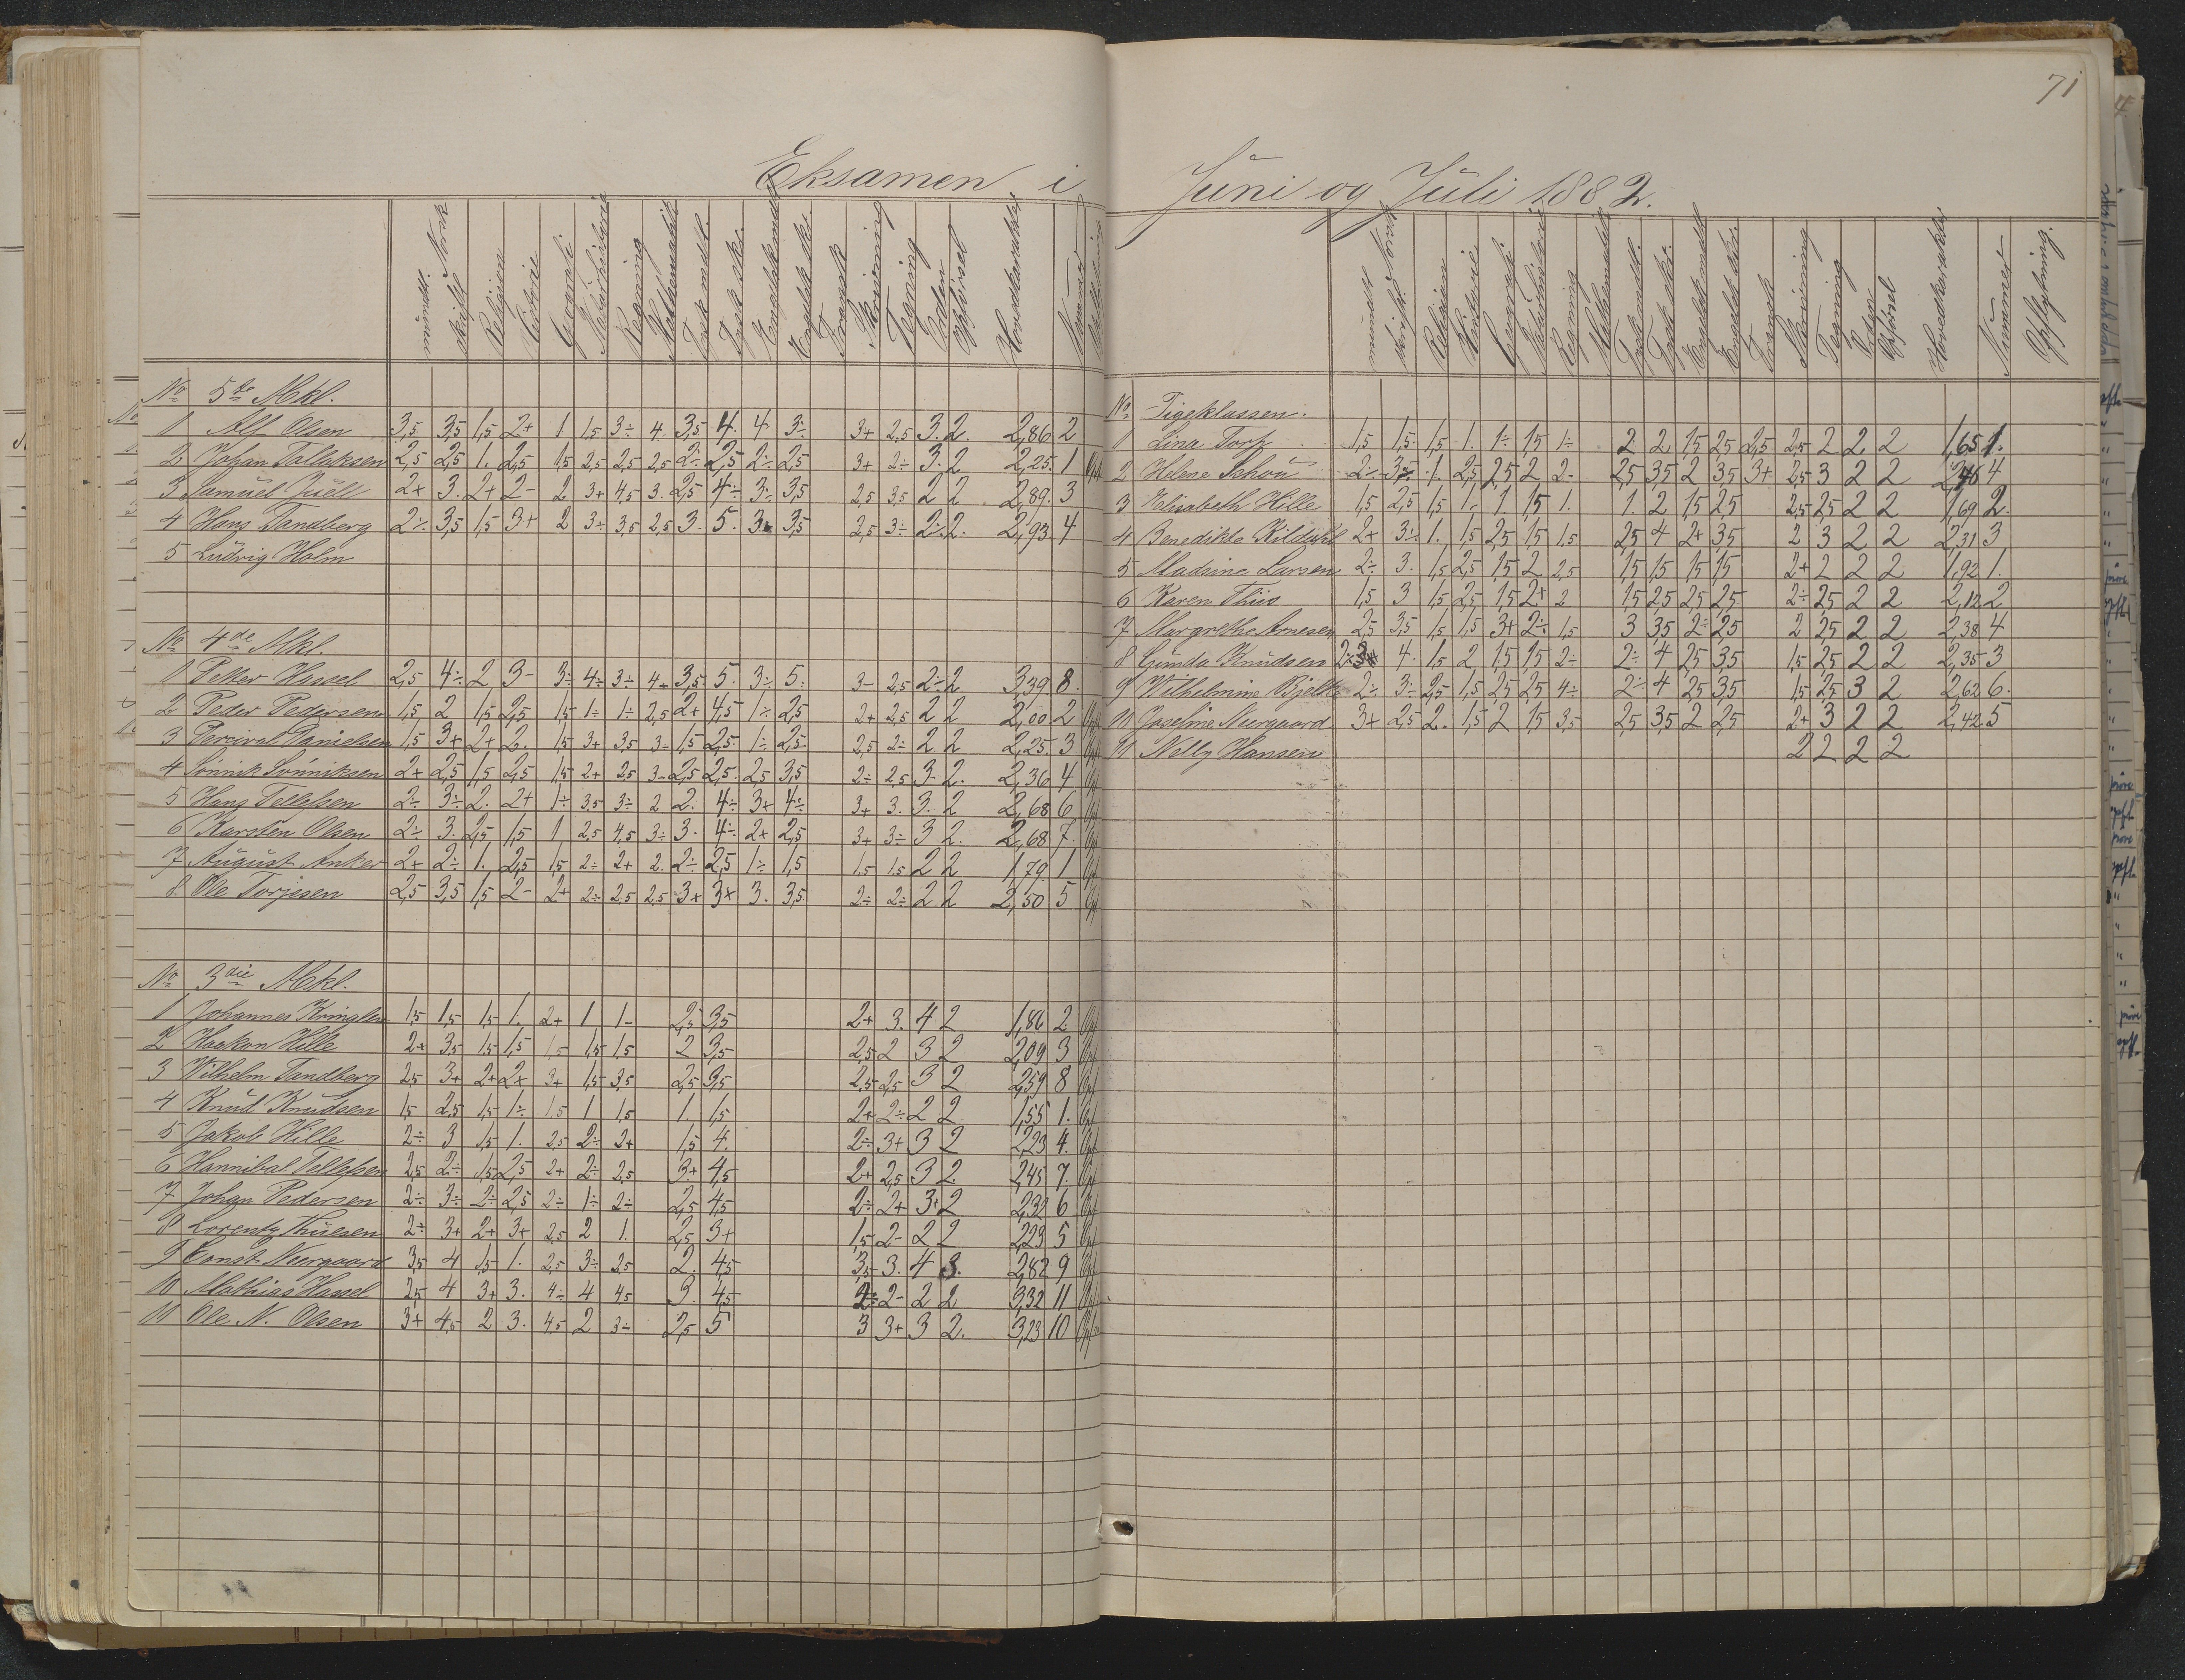 71
Eksamen i Juni og Juli 1882.
mundtl. Norsk
skriftl.
Religion
Historie
Geografi
Naturhistorie
Regning
Mathematik
Tysk mdtl.
Tysk skr.
Engelsk mdtl.
Engelsk skr.
Fransk
Skrivning
Tegning
Orden
Opførsel
Hovedkarakter
Nummer
No 5te Mkl.
1 Alf Olsen 3,5 3,5 1,5 2+ 1 1,5 3÷ 4. 3,5 4. 4 3÷ 3+ 2,5 3. 2. 2,86 2
2 Johan Tallaksen 2,5 2,5 1. 2,5 1,5 2,5 2,5 2,5 2÷ 2,5 2÷ 2,5 3+ 2÷ 3. 2 2,25. 1 Opf
3 Samuel Juell 2+ 3. 2+ 2- 2 3+ 4,5 3. 2,5 4÷ 3÷ 3,5 2,5 3,5 2 2 2,89. 3
4 Hans Tandberg 2÷ 3,5 1,5 3+ 2 3÷ 3,5 2,5 3. 5. 3. 3,5 2,5 3÷ 2÷ 2. 2,93. 4
5 Ludvig Holm
No 4de Mkl.
1 Petter Hassel 2,5 4÷ 2 3- 3÷ 4÷ 3÷ 4+ 3,5 5. 3÷ 5. 3- 2,5 2÷ 2 3,39 8.
2 Peder Pedersen 1,5 2 1,5 2,5 1,5 1÷ 1÷ 2,5 2+ 4,5 1÷ 2,5 2+ 2,5 2 2 2,00 2 Opf
3 Percival Danielsen 1,5 3+ 2+ 2. 1,5 3+ 3,5 3÷ 1,5 2,5. 1÷ 2,5 2,5 2÷ 2 2 2,25. 3 Opf
4 Sønnik Sønniksen 2+ 2,5 1,5 2,5 1,5 2+ 2,5 3- 2,5 2,5. 2,5 3,5 2÷ 2,5 3. 2. 2,36 4 Opf
5 Hans Tellefsen 2÷ 3÷ 2. 2+ 1÷ 3,5 3÷ 2 2. 4÷ 3+ 4÷ 3+ 3. 3. 2 2,68 6 Opf
6 Karsten Olsen 2÷ 3. 2,5 1,5 1 2,5 4,5 3÷ 3. 4÷ 2+ 2,5 3+ 3÷ 3 2. 2,68 7. Opf
7 August Anker 2+ 2÷ 1. 2,5 1,5 2÷ 2+ 2. 2÷ 2,5 1÷ 1,5 1,5 1,5 2 2 1,79. 1 Opf
8 Ole Torjesen 2,5 3,5 1,5 2- 2+ 2÷ 2,5 2,5 3+ 3+ 3. 3,5 2÷ 2÷ 2 2 2,50 5 Opf
No 3die Mkl.
1 Johannes Kringlen 1,5 1,5 1,5 1. 2+ 1 1- 2,5 3,5 2+ 3. 4 2 1,86 2 Opf
2 Haakon Hille 2+ 3,5 1,5 1,5 1,5 1,5 1,5 2 3,5 2,5 2 3 2 2,09 3 Opf
3 Wilhelm Tandberg 2,5 3+ 2+ 2+ 3+ 1,5 3,5 2,5 3,5 2,5 2,5 3 2 2,59 8 Opf
4 Knut Knudsen 1,5 2,5 1,5 1÷ 1,5 1 1,5 1. 1,5 2+ 2÷ 2 2 1,55 1. Opf
5 Jakob Hille 2÷ 3 1,5 1. 2,5 2÷ 2+ 1,5 4. 2÷ 3+ 3 2 2,23 4. Opf
6 Hannibal Tellefsen 2,5 2÷ 1,5 2,5 2+ 2÷ 2,5 3+ 4,5 2+ 2,5 3 2. 2,45 7. Opf
7 Johan Pedersen 2÷ 3÷ 2÷ 2,5 2÷ 1÷ 2÷ 2,5 4,5 2÷ 2+ 3+ 2 2,32 6 Opf
8 Lorentz Thuesen 2÷ 3+ 2+ 3+ 2,5 2 1. 2,5 3+ 1,5 2- 2 2 2,23 5 Opf
9 Const. Neergaard 3,5 4 1,5 1. 2,5 3÷ 2,5 2. 4,5 3,5 3. 4 3. 2,82 9 Opf
10 Mathias Hassel 2,5 4 3+ 3. 4÷ 4 4,5 3. 4,5 2÷ 2- 2 2 3,32 11 Opf
11 Ole N. Olsen 3+ 4,5 2 3. 4,5 2 3÷ 2,5 5 3 3+ 3 2. 3,23 10 Opf
mundtl. Norsk
skriftl.
Religion
Historie
Geografi
Naturhistorie
Regning
Mathematik
Tysk mdtl.
Tysk skr.
Engelsk mdtl
Engelsk skr.
Fransk
Skrivning
Tegning
Orden
Opførsel
Hovedkarakter
Nummer
Opflytning.
No Pigeklassen.
1 Lina Torp 1,5 1,5. 1,5 1. 1÷ 1,5 1÷ 2. 2 1,5 2,5 2,5 2,5 2 2. 2 1,65 1.
2 Helene Schou 2÷ 3÷ 1. 2,5 2,5 2 2- 2,5 3,5 2 3,5 3+ 2,5 3 2 2 2,46 4
3 Elisabeth Hille 1,5 2,5 1,5 1- 1. 1,5 1. 1. 2 1,5 2,5 2,5 2,5 2 2 1,69 2.
4 Benedikte Kildahl 2+ 3÷ 1. 1,5 2,5 1,5 1,5 2,5 4 2+ 3,5 2 3 2 2 2,31 3
5 Madsine Larsen 2÷ 3. 1,5 2,5 1,5 2 2,5 1,5 1,5 1,5 1,5 2+ 2 2 2 1,92 1.
6 Karen Thiis 1,5 3 1,5 2,5 1,5 2+ 2 1,5 2,5 2,5 2,5 2÷ 2,5 2 2 2,12 2
7 Margrethe Arnesen 2,5 3,5 1,5 1,5 3+ 2÷ 1,5 3 3,5 2÷ 2,5 2 2,5 2 2 2,38 4
8 Gunda Knudsen 2÷ 4. 1,5 2 1,5 1,5 2÷ 2÷ 4 2,5 3,5 1,5 2,5 2 2 2,35 3
9 Wilhelmine Bjelke 2÷ 3÷ 2,5 1,5 2,5 2,5 4÷ 2÷ 4 2,5 3,5 1,5 2,5 3 2 2,62 6.
10 Josefine Neergaard 3+ 2,5 2. 1,5 2 1,5 3,5 2,5 3,5 2 2,5 2+ 3 2 2 2,42 5
11 Nelly Hansen 2 2 2 2